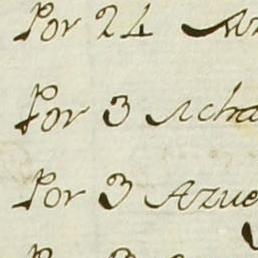 Por 24
Por 3 Acha
Por 3 Azue